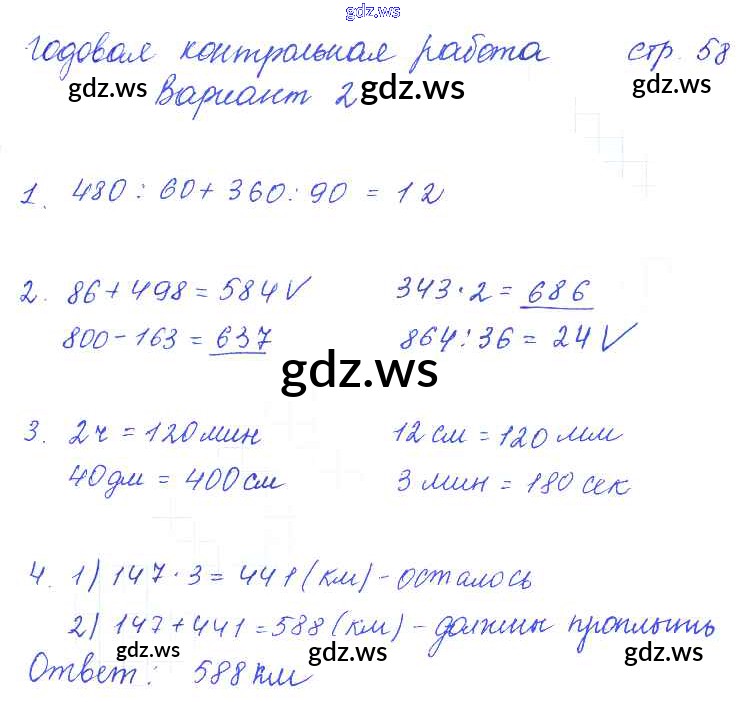 gdz.ws
Годовая контрольная работа стр. 58
gdz.ws gdz.ws gdz.ws
Вариант 2
1. 480 : 60 + 360 : 90 = 12
2. 86 + 498 = 584 V 343 · 2 = 686
800 - 163 = 637 864 : 36 = 24 V
gdz.ws
3. 2 ч = 120 мин 12 см = 120 мм
40 дм = 400 см 3 мин = 180 сек
4. 1) 147 · 3 = 441 (км) - осталось
2) 147 + 441 = 588 (км) - должны проплыть
gdz.ws gdz.ws gdz.ws
Ответ: 588 км